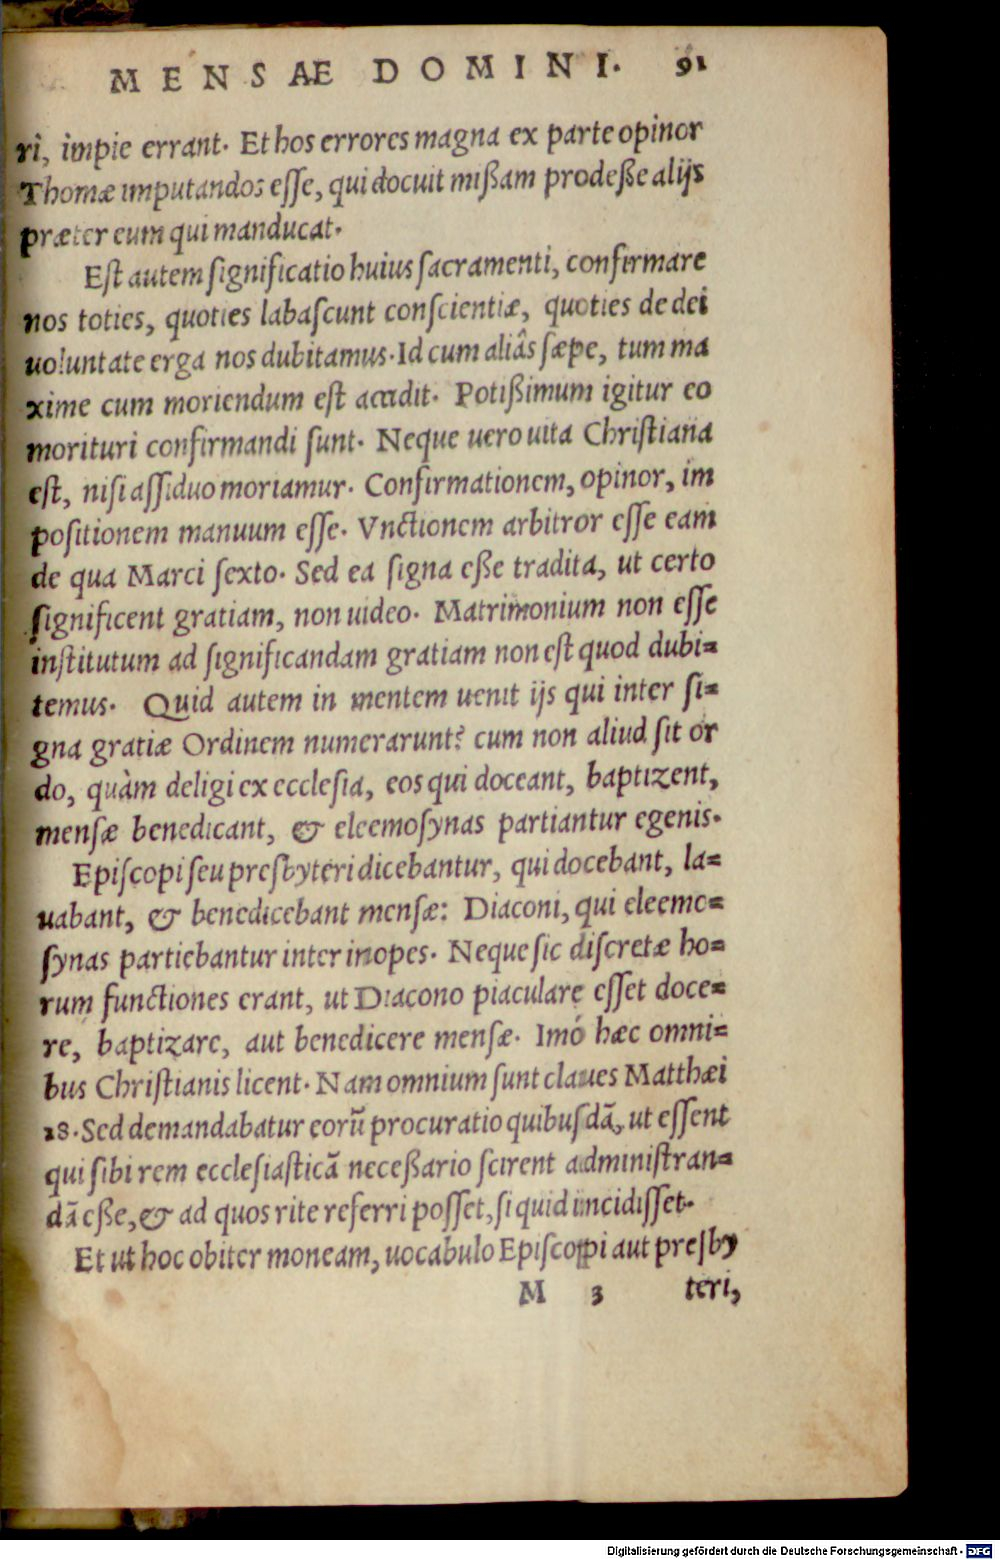 MENSAE DOMINI. 91
ri, impie errant. Et hos errores magna ex parte opinor
Thomæ imputandos eſſe, qui docuit mißam prodeße alijs
præter eum qui manducat.
Eſt autem ſignificatio huius ſacramenti, confirmare
nos toties, quoties labaſcunt conſcientiæ, quoties de dei
uoluntate erga nos dubitamus. Id cum aliâs ſæpe, tum ma
xime cum moriendum eſt accidit. Potißimum igitur eo
morituri confirmandi ſunt. Neque uero uita Chriſtiana
eſt, niſi aſſiduo moriamur. Confirmationem, opinor, im
poſitionem manuum eſſe. Vnctionem arbitror eſſe eam
de qua Marci ſexto. Sed ea ſigna eße tradita, ut certo
ſignificent gratiam, non uideo. Matrimonium non eſſe
inſtitutum ad ſignificandam gratiam non eſt quod dubi=
temus. Quid autem in mentem uenit ijs qui inter ſi=
gna gratiæ Ordinem numerarunt? cum non aliud ſit or
do, quàm deligi ex eccleſia, eos qui doceant, baptizent,
menſæ benedicant, & eleemoſynas partiantur egenis.
Epiſcopi ſeu preſbyteri dicebantur, qui docebant, la=
uabant, & benedicebant menſæ: Diaconi, qui eleemo=
ſynas partiebantur inter inopes. Neque ſic diſcretæ ho=
rum functiones erant, ut Diacono piaculare eſſet doce=
re, baptizare, aut benedicere menſæ. Imó hæc omni=
bus Chriſtianis licent. Nam omnium ſunt claues Matthæi
18. Sed demandabatur eorū procuratio quibuſdā, ut eſſent
qui ſibi rem eccleſiaſticā neceßario ſcirent adminiſtran=
dā eße, & ad quos rite referri poſſet, ſi quid incidiſſet.
Et ut hoc obiter moneam, uocabulo Epiſcopi aut preſby
M 3 teri,
Digitalisierung gefördert durch die Deutsche Forschungsgemeinschaft - DFG